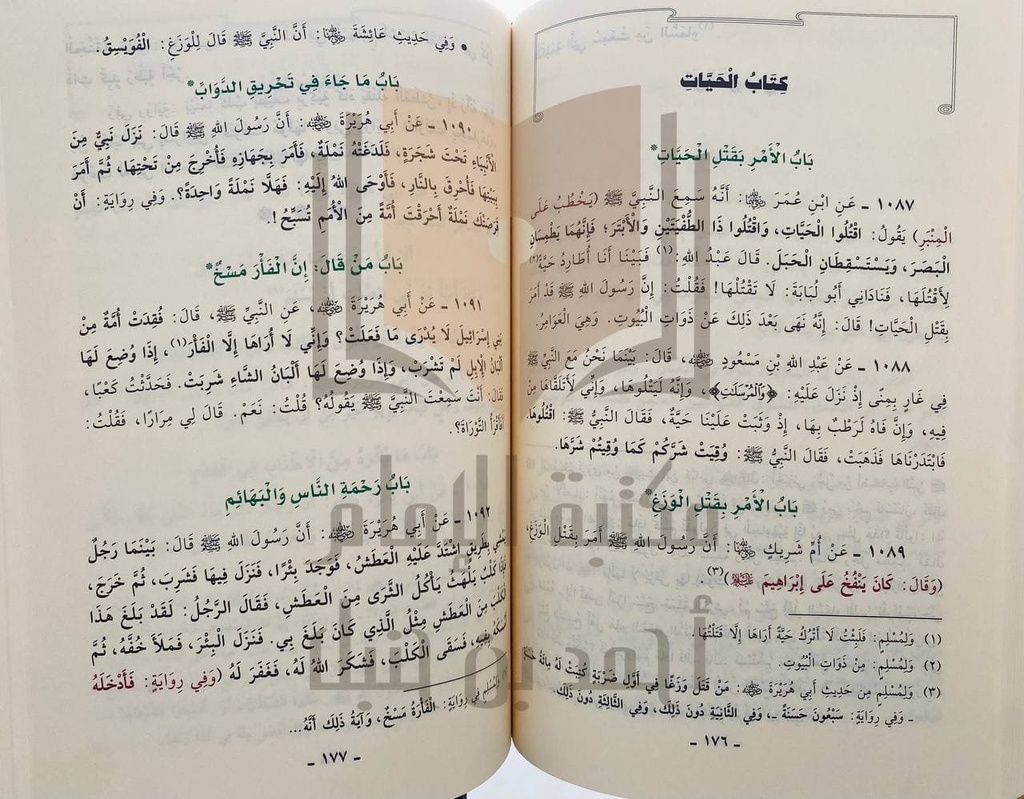 كِتَابُ الْحَيَّاتِ
بَابُ الْأَمْرِ بِقَتْلِ الْحَيَّاتِ*
١٠٨٧ ـ عَنِ ابْنِ عُمَرَ ﵄: أَنَّهُ سَمِعَ النَّبِيَّ ﷺ (يَخْطُبُ عَلَى
الْمِنْبَرِ) يَقُولُ: اقْتُلُوا الْحَيَّاتِ، وَاقْتُلُوا ذَا الطُّفْيَتَيْنِ وَالْأَبْتَرَ؛ فَإِنَّهُمَا يَطْمِسَانِ
الْبَصَرَ، وَيَسْتَسْقِطَانِ الْحَبَلَ. قَالَ عَبْدُ اللهِ:(١) فَبَيْنَا أَنَا أُطَارِدُ حَيَّةً(٢)
لِأَقْتُلَهَا، فَنَادَانِي أَبُو لُبَابَةَ: لَا تَقْتُلْهَا! فَقُلْتُ: إِنَّ رَسُولَ اللهِ ﷺ قَدْ أَمَرَ
بِقَتْلِ الْحَيَّاتِ! قَالَ: إِنَّهُ نَهَى بَعْدَ ذَلِكَ عَنْ ذَوَاتِ الْبُيُوتِ. وَهِيَ الْعَوَامِرُ.
١٠٨٨ ـ عَنْ عَبْدِ اللهِ بْنِ مَسْعُودٍ ﵁، قَالَ: بَيْنَمَا نَحْنُ مَعَ النَّبِيِّ ﷺ
فِي غَارٍ بِمِنًى إِذْ نَزَلَ عَلَيْهِ: ﴿وَالْمُرْسَلَتِ﴾، وَإِنَّهُ لَيَتْلُوهَا، وَإِنِّي لَأَتَلَقَّاهَا مِنْ
فِيهِ، وَإِنَّ فَاهُ لَرَطْبٌ بِهَا، إِذْ وَثَبَتْ عَلَيْنَا حَيَّةٌ، فَقَالَ النَّبِيُّ ﷺ: اقْتُلُوهَا.
فَابْتَدَرْنَاهَا فَذَهَبَتْ، فَقَالَ النَّبِيُّ ﷺ: وُقِيَتْ شَرَّكُمْ كَمَا وُقِيتُمْ شَرَّهَا.
بَابُ الْأَمْرِ بِقَتْلِ الْوَزَغِ*
١٠٨٩ ـ عَنْ أُمِّ شَرِيكٍ ﵂: أَنَّ رَسُولَ اللهِ ﷺ أَمَرَ بِقَتْلِ الْوَزَغِ،
(وَقَالَ: كَانَ يَنْفُخُ عَلَى إِبْرَاهِيمَ ﵇)(٣).
(١) وَلِمُسْلِمٍ: فَلَبِثْتُ لَا أَتْرُكُ حَيَّةً أَرَاهَا إِلَّا قَتَلْتُهَا.
(٢) وَلِمُسْلِمٍ: مِنْ ذَوَاتِ الْبُيُوتِ.
(٣) وَلِمُسْلِمٍ مِنْ حَدِيثِ أَبِي هُرَيْرَةَ ﵁: مَنْ قَتَلَ وَزَغًا فِي أَوَّلِ ضَرْبَةٍ كُتِبَتْ لَهُ مِائَةُ حَسَنَةٍ
ـ وَفِي رِوَايَةٍ: سَبْعُونَ حَسَنَةً ـ، وَفِي الثَّانِيَةِ دُونَ ذَلِكَ، وَفِي الثَّالِثَةِ دُونَ ذَلِكَ.
- ١٧٦ -
• وَفِي حَدِيثِ عَائِشَةَ ﵂: أَنَّ النَّبِيَّ ﷺ قَالَ لِلْوَزَغِ: الْفُوَيْسِقُ.
بَابُ مَا جَاءَ فِي تَحْرِيقِ الدَّوَابِّ*
١٠٩٠ ـ عَنْ أَبِي هُرَيْرَةَ ﵁: أَنَّ رَسُولَ اللهِ ﷺ قَالَ: نَزَلَ نَبِيٌّ مِنَ
الْأَنْبِيَاءِ تَحْتَ شَجَرَةٍ، فَلَدَغَتْهُ نَمْلَةٌ، فَأَمَرَ بِجَهَازِهِ فَأُخْرِجَ مِنْ تَحْتِهَا، ثُمَّ أَمَرَ
بِبَيْتِهَا فَأُحْرِقَ بِالنَّارِ، فَأَوْحَى اللهُ إِلَيْهِ: فَهَلَّا نَمْلَةً وَاحِدَةً؟. وَفِي رِوَايَةٍ: أَنْ
قَرَصَتْكَ نَمْلَةٌ أَحْرَقْتَ أُمَّةً مِنَ الْأُمَمِ تُسَبِّحُ!.
بَابُ مَنْ قَالَ: إِنَّ الْفَأْرَ مَسْخٌ*
١٠٩١ ـ عَنْ أَبِي هُرَيْرَةَ ﵁، عَنِ النَّبِيِّ ﷺ، قَالَ: فُقِدَتْ أُمَّةٌ مِنْ
بَنِي إِسْرَائِيلَ لَا يُدْرَى مَا فَعَلَتْ؟ وَإِنِّي لَا أُرَاهَا إِلَّا الْفَأْرَ(١)، إِذَا وُضِعَ لَهَا
أَلْبَانُ الْإِبِلِ لَمْ تَشْرَبْ، وَإِذَا وُضِعَ لَهَا أَلْبَانُ الشَّاءِ شَرِبَتْ. فَحَدَّثْتُ كَعْبًا،
فَقَالَ: أَنْتَ سَمِعْتَ النَّبِيَّ ﷺ يَقُولُهُ؟ قُلْتُ: نَعَمْ. قَالَ لِي مِرَارًا، فَقُلْتُ:
أَفَأَقْرَأُ التَّوْرَاةَ؟.
بَابُ رَحْمَةِ النَّاسِ وَالْبَهَائِمِ
١٠٩٢ ـ عَنْ أَبِي هُرَيْرَةَ ﵁: أَنَّ رَسُولَ اللهِ ﷺ قَالَ: بَيْنَمَا رَجُلٌ
يَمْشِي بِطَرِيقٍ اشْتَدَّ عَلَيْهِ الْعَطَشُ، فَوَجَدَ بِئْرًا، فَنَزَلَ فِيهَا فَشَرِبَ، ثُمَّ خَرَجَ،
فَإِذَا كَلْبٌ يَلْهَثُ يَأْكُلُ الثَّرَى مِنَ الْعَطَشِ، فَقَالَ الرَّجُلُ: لَقَدْ بَلَغَ هَذَا
الْكَلْبَ مِنَ الْعَطَشِ مِثْلُ الَّذِي كَانَ بَلَغَ بِي. فَنَزَلَ الْبِئْرَ، فَمَلَأَ خُفَّهُ، ثُمَّ
أَمْسَكَهُ بِفِيهِ، فَسَقَى الْكَلْبَ، فَشَكَرَ اللهُ لَهُ، فَغَفَرَ لَهُ (وَفِي رِوَايَةٍ: فَأَدْخَلَهُ
(١) وَلِمُسْلِمٍ فِي رِوَايَةٍ: الْفَأْرَةُ مَسْخٌ، وَآيَةُ ذَلِكَ أَنَّهُ...
- ١٧٧ -
مكتبة الإمام
أحمد بن حنبل